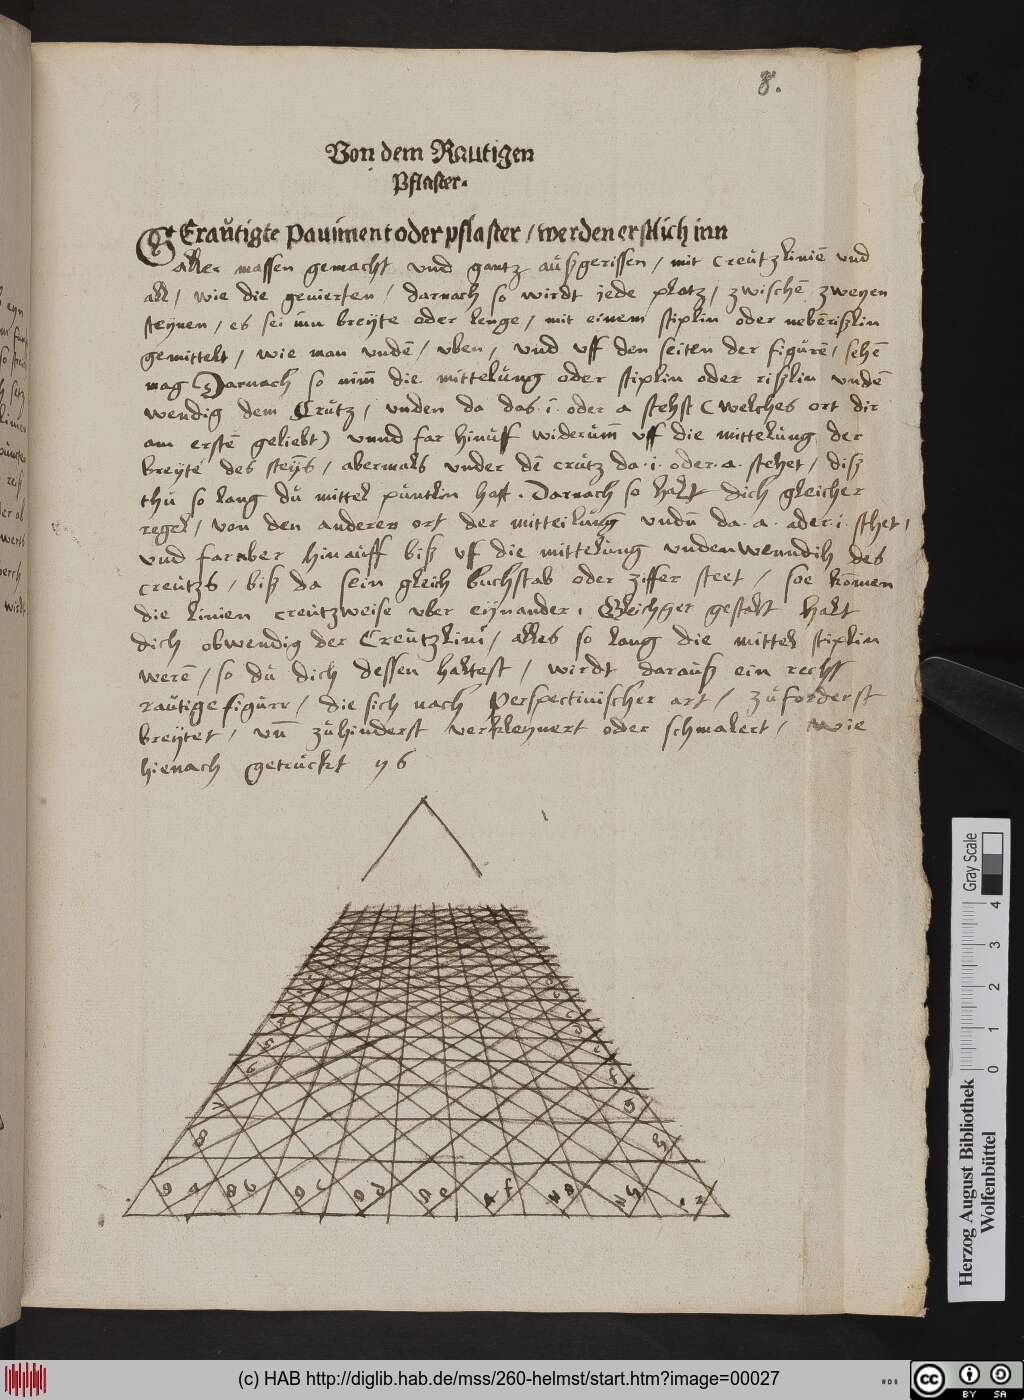 8.
Von dem Rautigen
Pflaster.
GErautigte Paviment oder pflaster / werden erstlich inn
aller massen gemacht vnd gantz außgerissen / mit Creützlinie vnd
all / wie die gevierten / darnach so wirdt jede platz / zwischē zweyen
steynen / es sei inn breyte oder lenge / mit einem stiplin oder nebērißlin
gemittelt / wie man vndē / oben / vnd vff den seiten der figurē / sehē
mag Darnach so nim̄ die mittelung oder stiplin oder rißlin vndē
wendig dem Crütz / vnden da das .i. oder a stehst (welches ort dir
am erstē geliebt) vnnd far hinuff widerum̄ vff die mittelung der
breyte des steyns / abermals vnder dē crütz da .i. oder .a. stehet / diß
thü so lang dü mittel püntlin hast . Darnach so halt dich gleicher
regel / von den anderen ort der mitteilung vndn da .a. ader .i. sthet /
vnd far aber hinauff biß vff die mittelung vnden wenndih des
creützs / biß da sein gleich buchstab oder ziffer steet / soe kōmen
die linien creützweise vber eijnander . Gleichger gestalt halt
dich obwendig der Creützlini / alles so lang die mittel stiplin
werē / so dü dich dessen haltest / wirdt darauß ein recht
rautige figurr / die sich nach Perspectivischer art / züforderst
breijtet / vn̄ zühinderst verkleynert oder schmalert / wie
hienach getruckt ys
9 a 8 b c d e f g
5 6 7 8
Gray Scale
0 1 2 3 4
Herzog August Bibliothek
Wolfenbüttel
(c) HAB http://diglib.hab.de/mss/260-helmst/start.htm?image=00027
cc BY SA